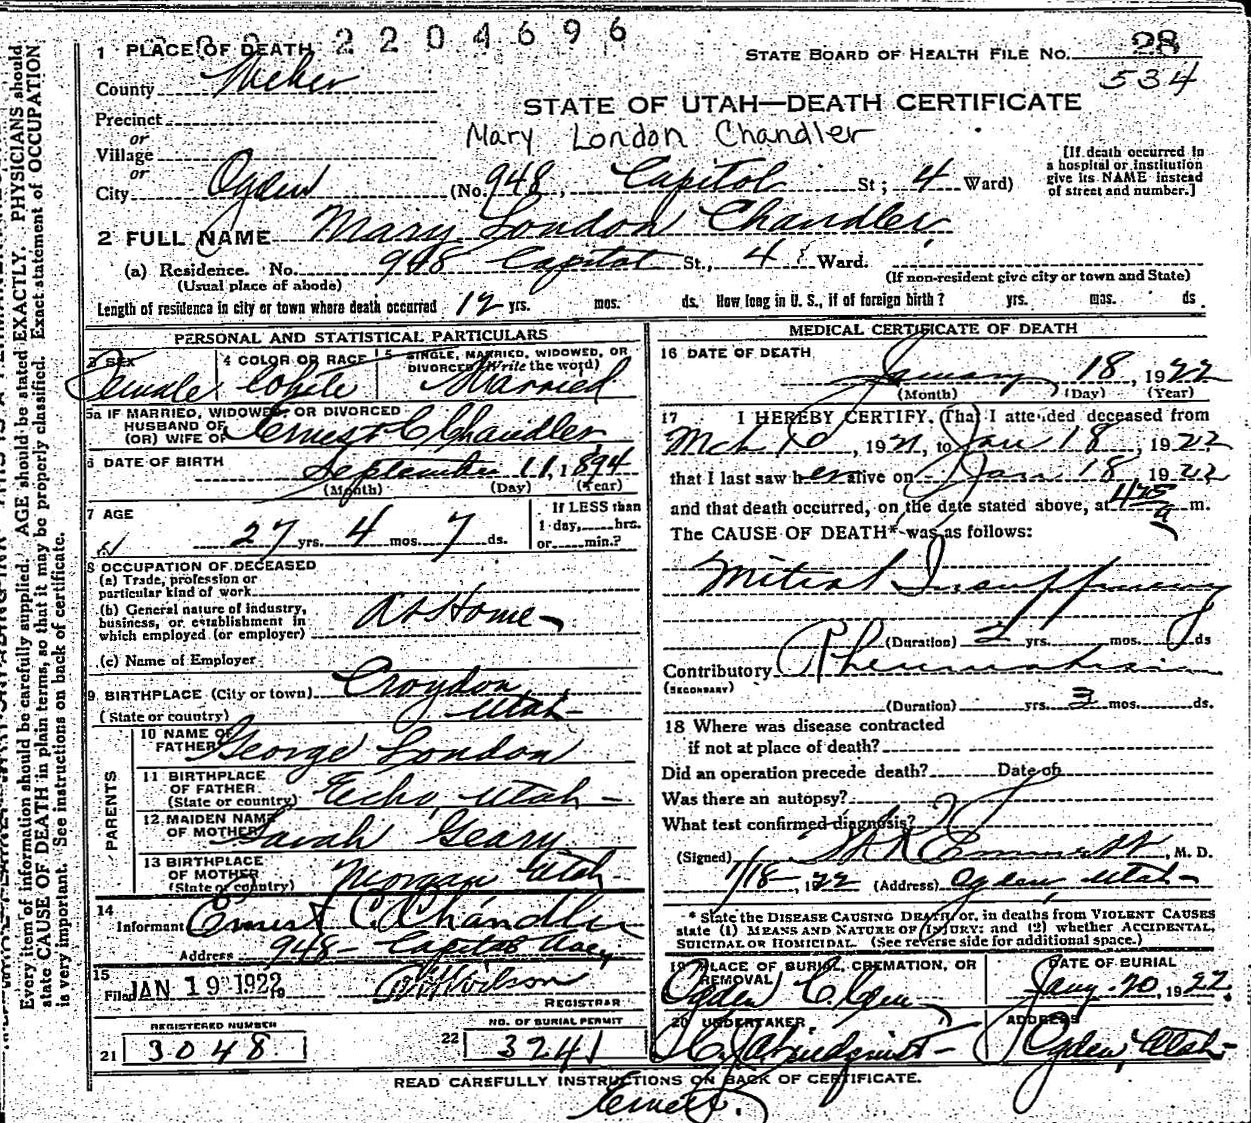 2204696
1 PLACE OF DEATH
STATE BOARD OF HEALTH FILE NO. 28
534
County Weber
STATE OF UTAH—DEATH CERTIFICATE
Precinct
or
Mary London Chandler
Village
or
[If death occurred in
a hospital or institution
give its NAME instead
of street and number.]
City Ogden (No. 948, Capitol St; 4 Ward)
2 FULL NAME Mary London Chandler
(a) Residence. No. 948 Capitol St., 4 Ward.
(Usual place of abode) (If non-resident give city or town and State)
Length of residence in city or town where death occurred 12 yrs. mos. ds. How long in U. S., if of foreign birth? yrs. mos. ds.
PERSONAL AND STATISTICAL PARTICULARS
3 SEX 4 COLOR OR RACE 5 SINGLE, MARRIED, WIDOWED, OR
DIVORCED (Write the word)
Female White Married
5a IF MARRIED, WIDOWED, OR DIVORCED
HUSBAND OF
(OR) WIFE OF Ernest C Chandler
6 DATE OF BIRTH September 11, 1894
(Month) (Day) (Year)
7 AGE
27 yrs. 4 mos. 7 ds.
If LESS than
1 day, hrs.
or min.?
8 OCCUPATION OF DECEASED
(a) Trade, profession or
particular kind of work
(b) General nature of industry,
business, or establishment in
which employed (or employer)
At Home
(c) Name of Employer
9. BIRTHPLACE (City or town) Croydon,
(State or country) Utah
PARENTS
10 NAME OF
FATHER George London
11 BIRTHPLACE
OF FATHER
(State or country) Echo, Utah
12. MAIDEN NAME
OF MOTHER Sarah Geary
13 BIRTHPLACE
OF MOTHER
(State or country) Morgan Utah
14
Informant Ernest C. Chandler
Address 948 Capitol
15
Filed JAN 19 1922 19 Wilson
REGISTRAR
REGISTERED NUMBER
21 3048
NO. OF BURIAL PERMIT
22 3241
MEDICAL CERTIFICATE OF DEATH
16 DATE OF DEATH
January 18, 1922
(Month) (Day) (Year)
17 I HEREBY CERTIFY, (That I attended deceased from
Mch, 1921, to Jan 18, 1922
that I last saw her alive on Jan 18 1922
and that death occurred, on the date stated above, at m.
The CAUSE OF DEATH* was as follows:
Mitral Insufficiency
(Duration) 2 yrs. mos. ds
Contributory Rheumatism
(SECONDARY)
(Duration) yrs. 3 mos. ds.
18 Where was disease contracted
if not at place of death?
Did an operation precede death? Date of
Was there an autopsy?
What test confirmed diagnosis?
(Signed) Emmett, M. D.
1/18, 1922 (Address) Ogden, Utah
* State the DISEASE CAUSING DEATH, or, in deaths from VIOLENT CAUSES
state (1) MEANS AND NATURE OF INJURY; and (2) whether ACCIDENTAL,
SUICIDAL OR HOMICIDAL. (See reverse side for additional space.)
19 PLACE OF BURIAL, CREMATION, OR
REMOVAL
Ogden
DATE OF BURIAL
Jany. 20, 1922.
20 UNDERTAKER
Lindquist
ADDRESS
Ogden, Utah
READ CAREFULLY INSTRUCTIONS ON BACK OF CERTIFICATE.
Every item of information should be carefully supplied. AGE should be stated EXACTLY. PHYSICIANS should
state CAUSE OF DEATH in plain terms, so that it may be properly classified. Exact statement of OCCUPATION
is very important. See instructions on back of certificate.